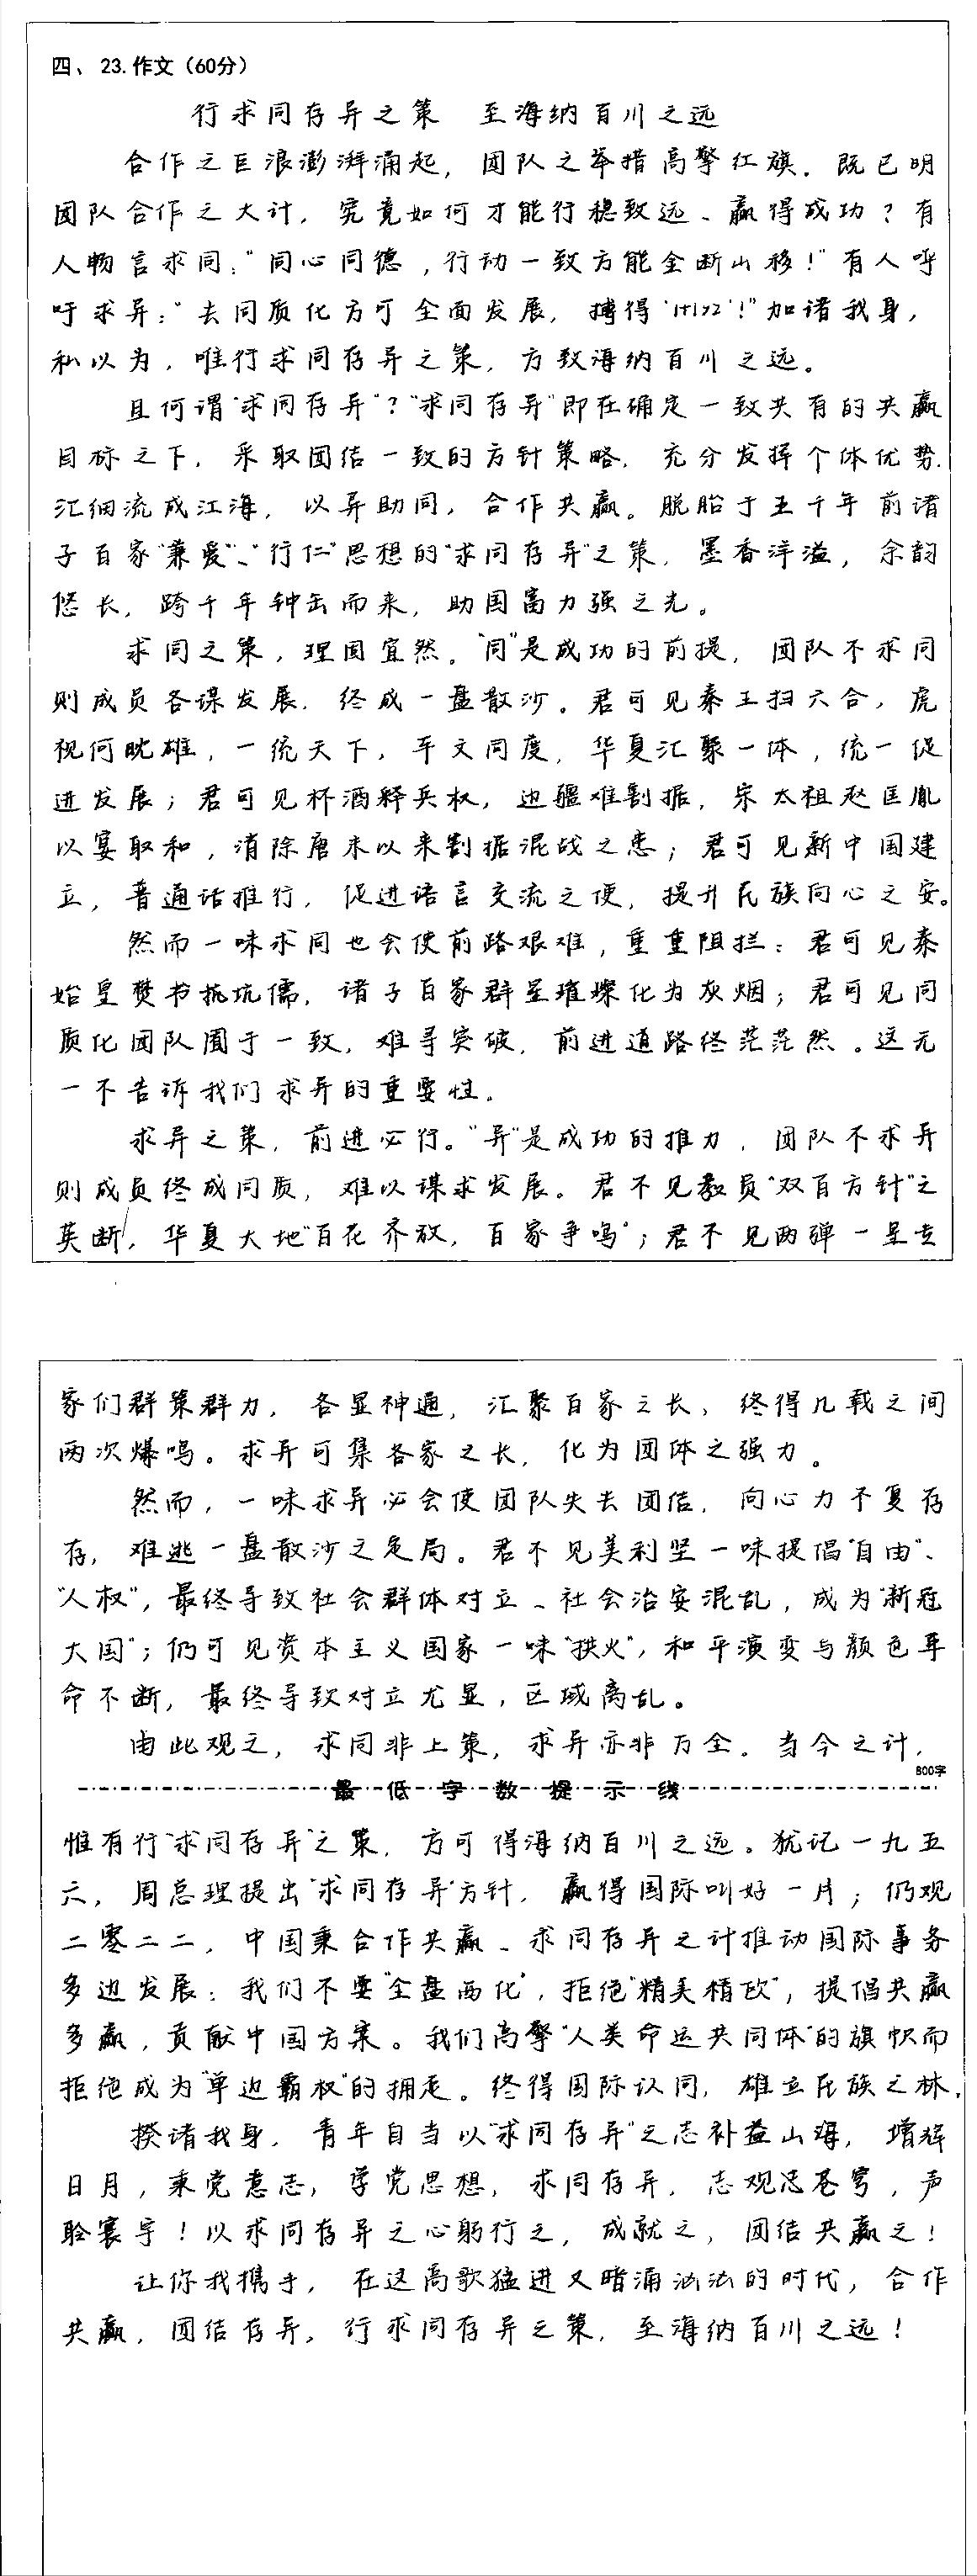 四、23.作文(60分)
行求同存异之策 至海纳百川之远
合作之巨浪澎湃涌起，团队之举措高擎红旗。既已明
团队合作之大计，究竟如何才能行稳致远、赢得成功？有
人畅言求同：“同心同德，行动一致方能金断山移！”有人呼
吁求异：“去同质化方可全面发展，搏得‘1+1>2’！”加诸我身，
私以为，唯行求同存异之策，方致海纳百川之远。
且何谓“求同存异”？“求同存异”即在确定一致共有的共赢
目标之下，采取团结一致的方针策略，充分发挥个体优势，
汇细流成江海，以异助同，合作共赢。脱胎于五千年前诸
子百家“兼爱”、“行仁”思想的“求同存异”之策，墨香洋溢，余韵
悠长，跨千年钟缶而来，助国富力强之光。
求同之策，理固宜然。“同”是成功的前提，团队不求同
则成员各谋发展，终成一盘散沙。君可见秦王扫六合，虎
视何眈雄，一统天下，车文同度，华夏汇聚一体，统一促
进发展；君可见杯酒释兵权，边疆难割据，宋太祖赵匡胤
以宴取和，消除唐末以来割据混战之患；君可见新中国建
立，普通话推行，促进语言交流之便，提升民族向心之安。
然而一味求同也会使前路艰难，重重阻拦：君可见秦
始皇焚书坑儒，诸子百家群星璀璨化为灰烟；君可见同
质化团队囿于一致，难寻突破，前进道路终茫茫然。这无
一不告诉我们求异的重要性。
求异之策，前进必行。“异”是成功的推力，团队不求异
则成员终成同质，难以谋求发展。君不见教员“双百方针”之
英断，华夏大地“百花齐放，百家争鸣”；君不见两弹一星专
家们群策群力，各显神通，汇聚百家之长，终得几载之间
两次爆鸣。求异可集各家之长，化为团体之强力。
然而，一味求异必会使团队失去团结，向心力不复存
存，难逃一盘散沙之危局。君不见美利坚一味提倡“自由”、
“人权”，最终导致社会群体对立、社会治安混乱，成为“新冠
大国”；仍可见资本主义国家一味“拱火”，和平演变与颜色革
命不断，最终导致对立尤显，区域离乱。
由此观之，求同非上策，求异亦非万全。当今之计，
800字
最低字数提示线
惟有行“求同存异”之策，方可得海纳百川之远。犹记一九五
六，周总理提出“求同存异”方针，赢得国际叫好一片；仍观
二零二二，中国秉合作共赢、求同存异之计推动国际事务
多边发展：我们不要“全盘西化”，拒绝“精美精欧”，提倡共赢
多赢，贡献中国方案。我们高擎“人类命运共同体”的旗帜而
拒绝成为“单边霸权”的拥趸。终得国际认同，雄立民族之林。
揆诸我身，青年自当以“求同存异”之志补益山海，增辉
日月，秉党意志，学党思想，求同存异，志观苍穹，声
聆寰宇！以求同存异之心躬行之，成就之，团结共赢之！
让你我携手，在这高歌猛进又暗涌汹汹的时代，合作
共赢，团结存异，行求同存异之策，至海纳百川之远！